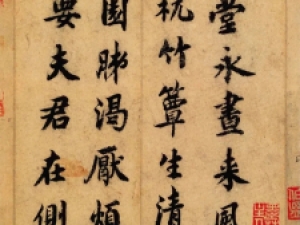 堂永晝来風
枕竹簟生清
園睇渴厭煩
要夫君在側